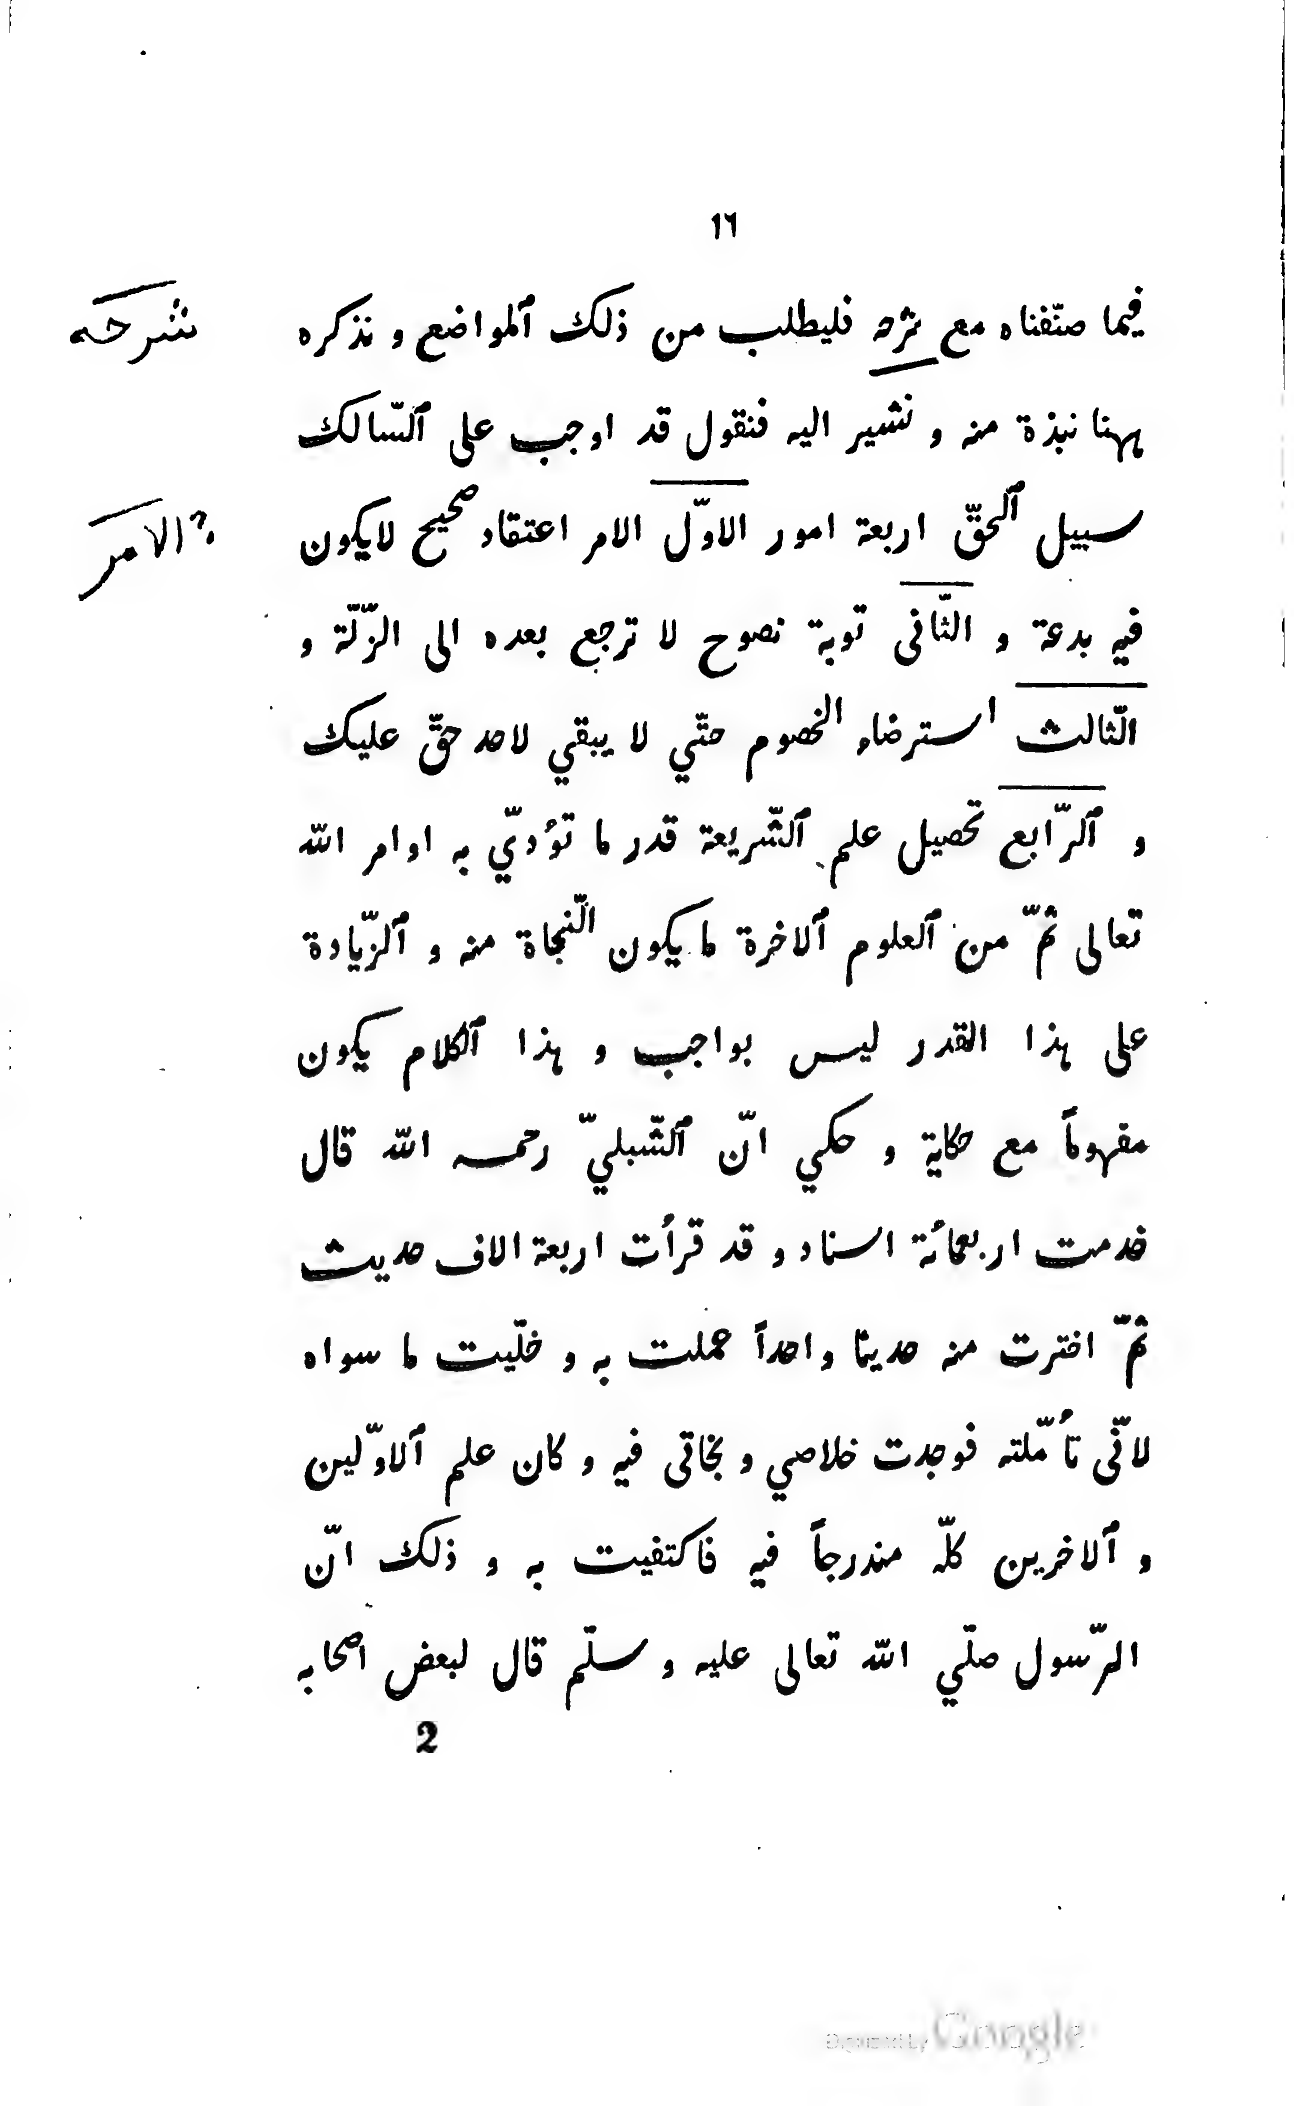 ١٦
فيما صنّفناه مع شرحه فليطلب من ذلك ٱلمواضع و نذكره
شرحه
ههنا نبذة منه و نشير اليه فنقول قد اوجب على ٱلسّالك
سبيل ٱلحقّ اربعة امور الاوّل الامر اعتقاد صحيح لايكون
الامر ?
فيه بدعة و الثّانى توبة نصوح لا ترجع بعده الى الزّلّة و
الثّالث استرضاء الخصوم حتّي لا يبقي لاحد حقّ عليك
و ٱلرّابع تحصيل علم ٱلشّريعة قدر ما تؤدّي به اوامر الله
تعالى ثمّ من ٱلعلوم ٱلاخرة ما يكون النّجاة منه و ٱلزّيادة
على هذا القدر ليس بواجب و هذا ٱلكلام يكون
مفهوماً مع حكاية و حكي انّ ٱلشّبليّ رحمه الله قال
خدمت اربعمائة استاد و قد قرأت اربعة الاف حديث
ثمّ اخترت منه حديثا واحداً عملت به و خلّيت ما سواه
لانّى تأمّلته فوجدت خلاصي و نجاتى فيه و كان علم ٱلاوّلين
و ٱلاخرين كلّه مندرجاً فيه فاكتفيت به و ذلك انّ
الرّسول صلّي الله تعالى عليه و سلّم قال لبعض اصحابه
2
Digitized by Google